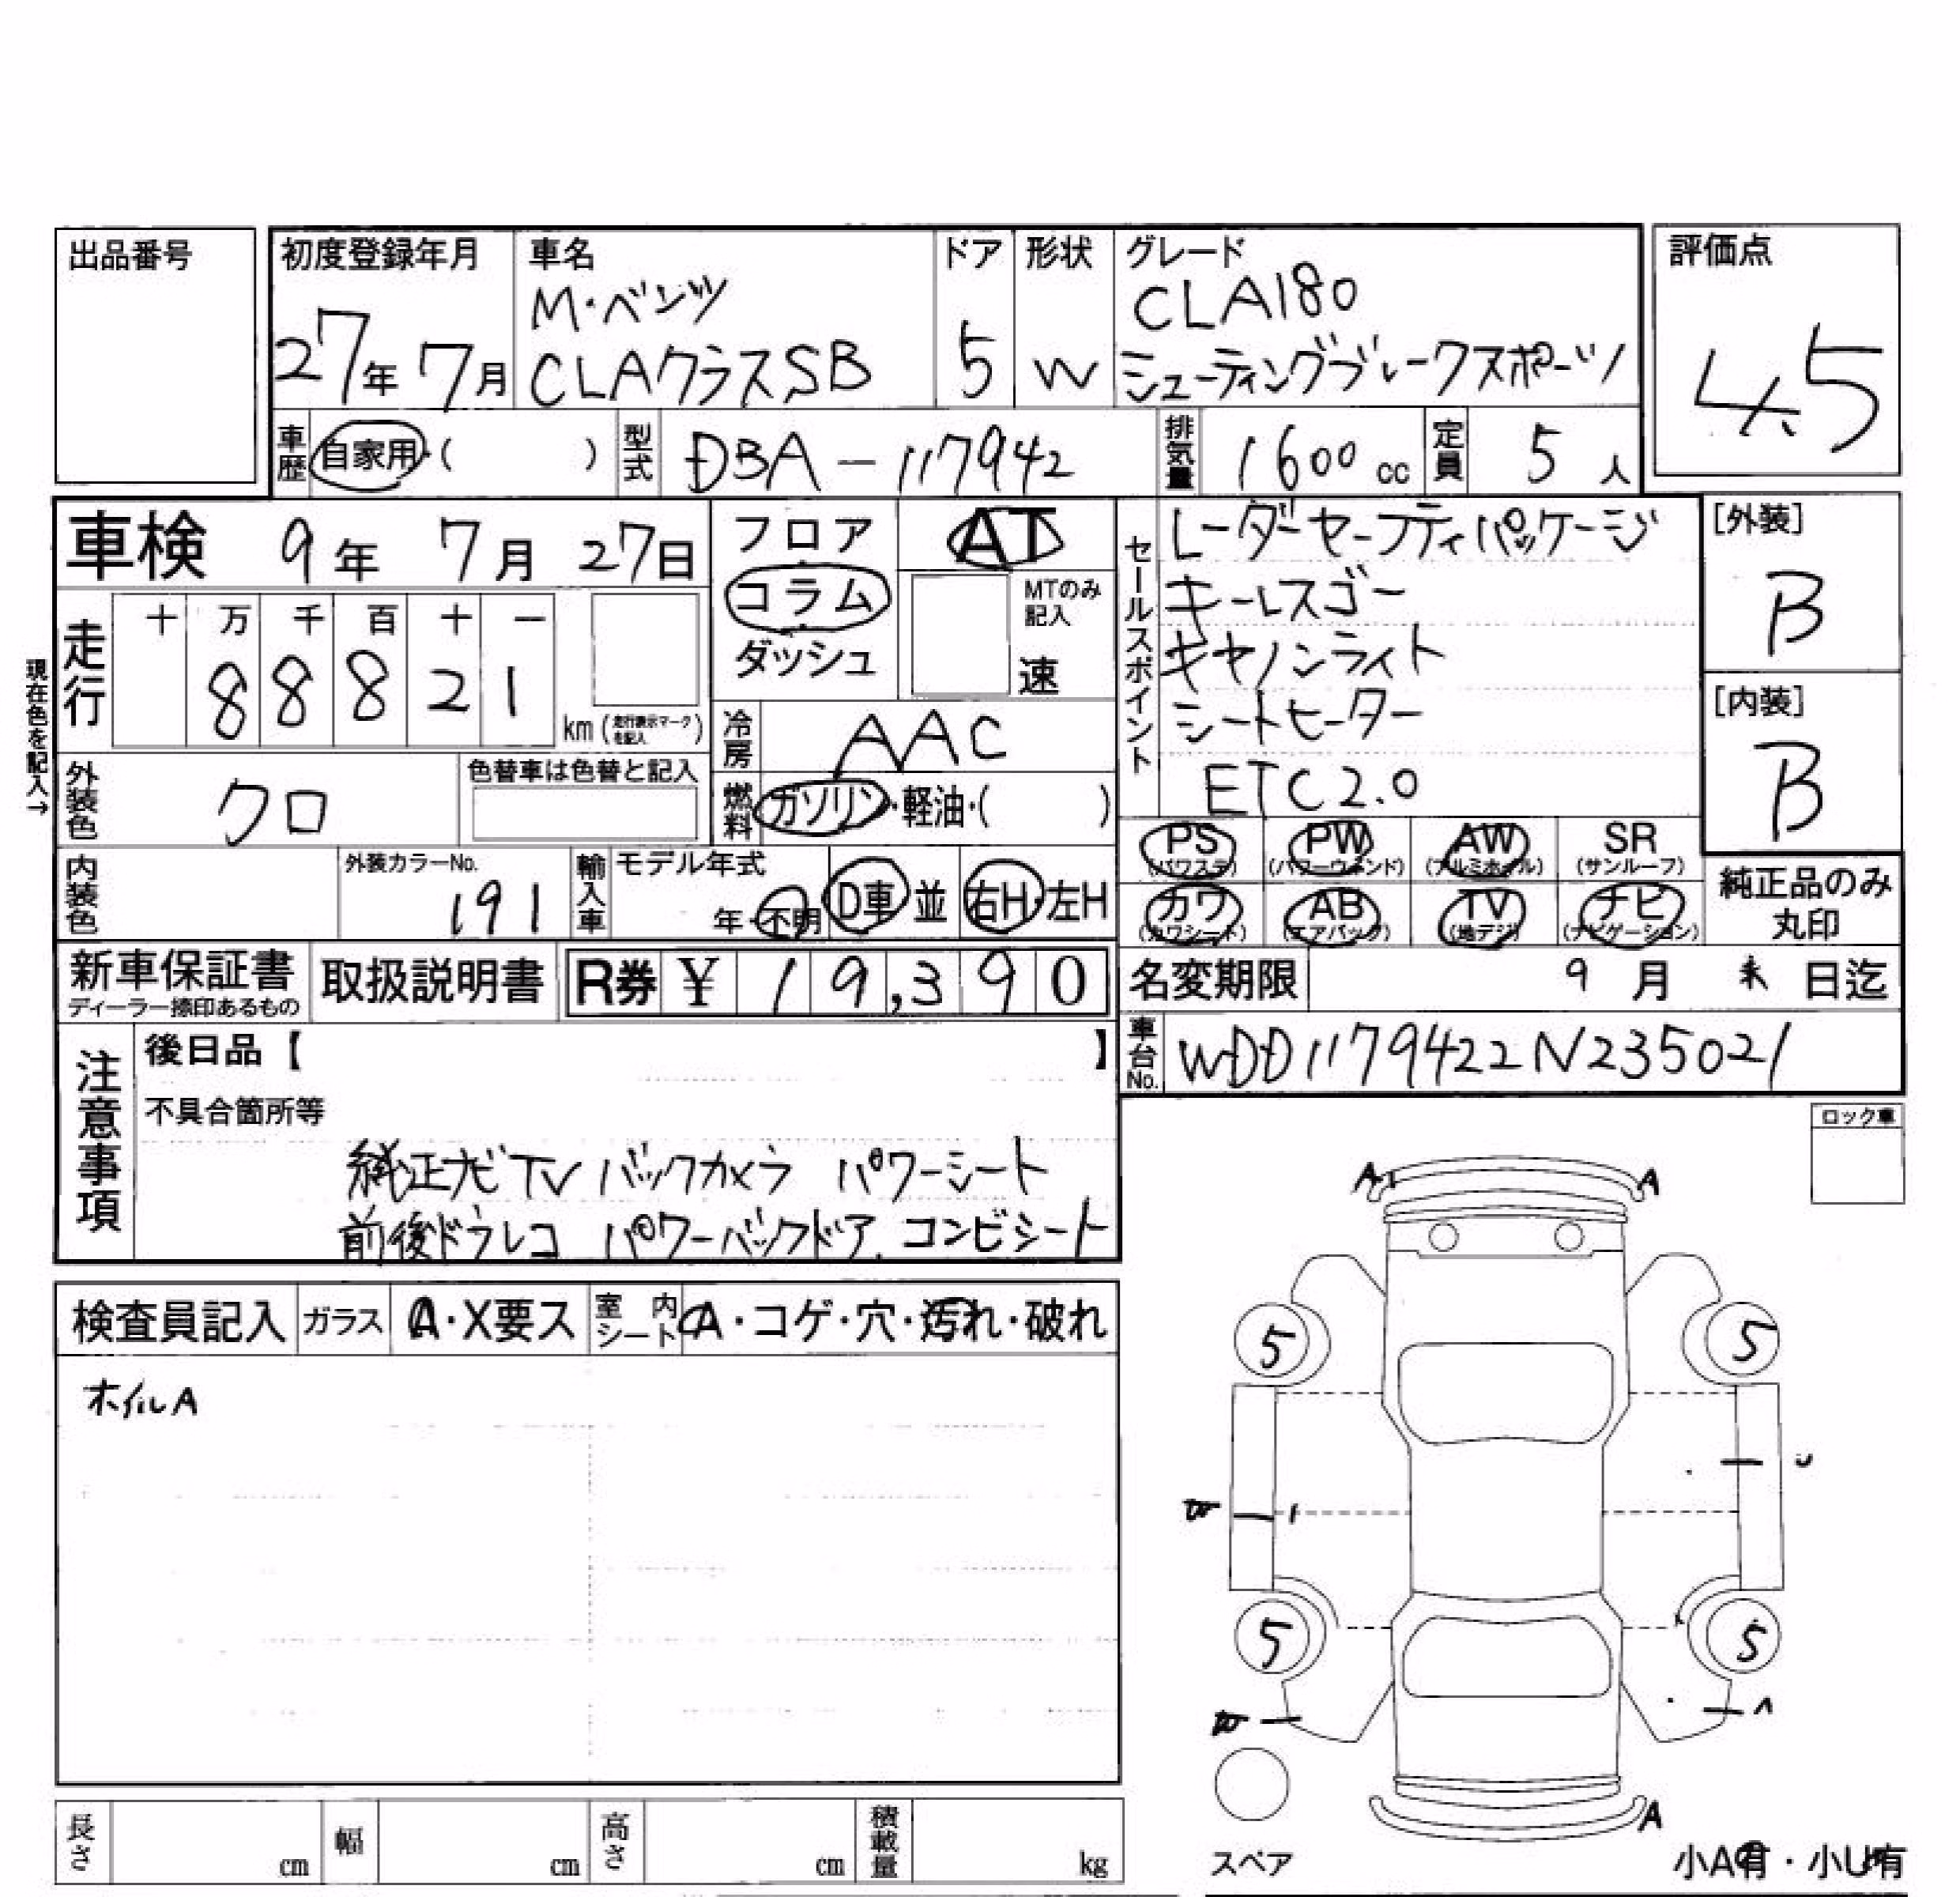 出品番号
初度登録年月 車名 ドア 形状 グレード 評価点
M・ベンツ CLA180
27年 7月 CLAクラスSB 5 W シューティングブレークスポーツ 4.5
車歴 自家用・( ) 型式 DBA-117942 排気量 1600 cc 定員 5 人
車検 9年 7月 27日 フロア AT セールスポイント レーダーセーフティパッケージ [外装]
コラム MTのみ記入 キーレスゴー B
走行 十 万 千 百 十 一 ダッシュ 速 キャノンライト
8 8 8 2 1 km (走行表示マークを記入) シートヒーター [内装]
現在色を記入→
冷房 AAC ETC2.0 B
外装色 クロ 色替車は色替と記入 燃料 ガソリン・軽油・( )
PS (パワステ) PW (パワーウィンド) AW (アルミホイル) SR (サンルーフ)
内装色 外装カラーNo. 191 輸入車 モデル年式 年・不明 D車 並 右H・左H カワ (カワシート) AB (エアバック) TV (地デジ) ナビ (ナビゲーション) 純正品のみ丸印
新車保証書 ディーラー捺印あるもの 取扱説明書 R券 ¥ 19,390 名変期限 9月 末 日迄
注意事項 後日品【 】 車台No. WDD1179422N235021
不具合箇所等 ロック車
純正ナビTV バックカメラ パワーシート
前後ドラレコ パワーバックドア. コンビシート
A1 A
検査員記入 ガラス A・X要ス 室内シート A・コゲ・穴・汚れ・破れ
5 5
ホイルA
5 5
A
長さ cm 幅 cm 高さ cm 積載量 kg スペア 小A有・小U有